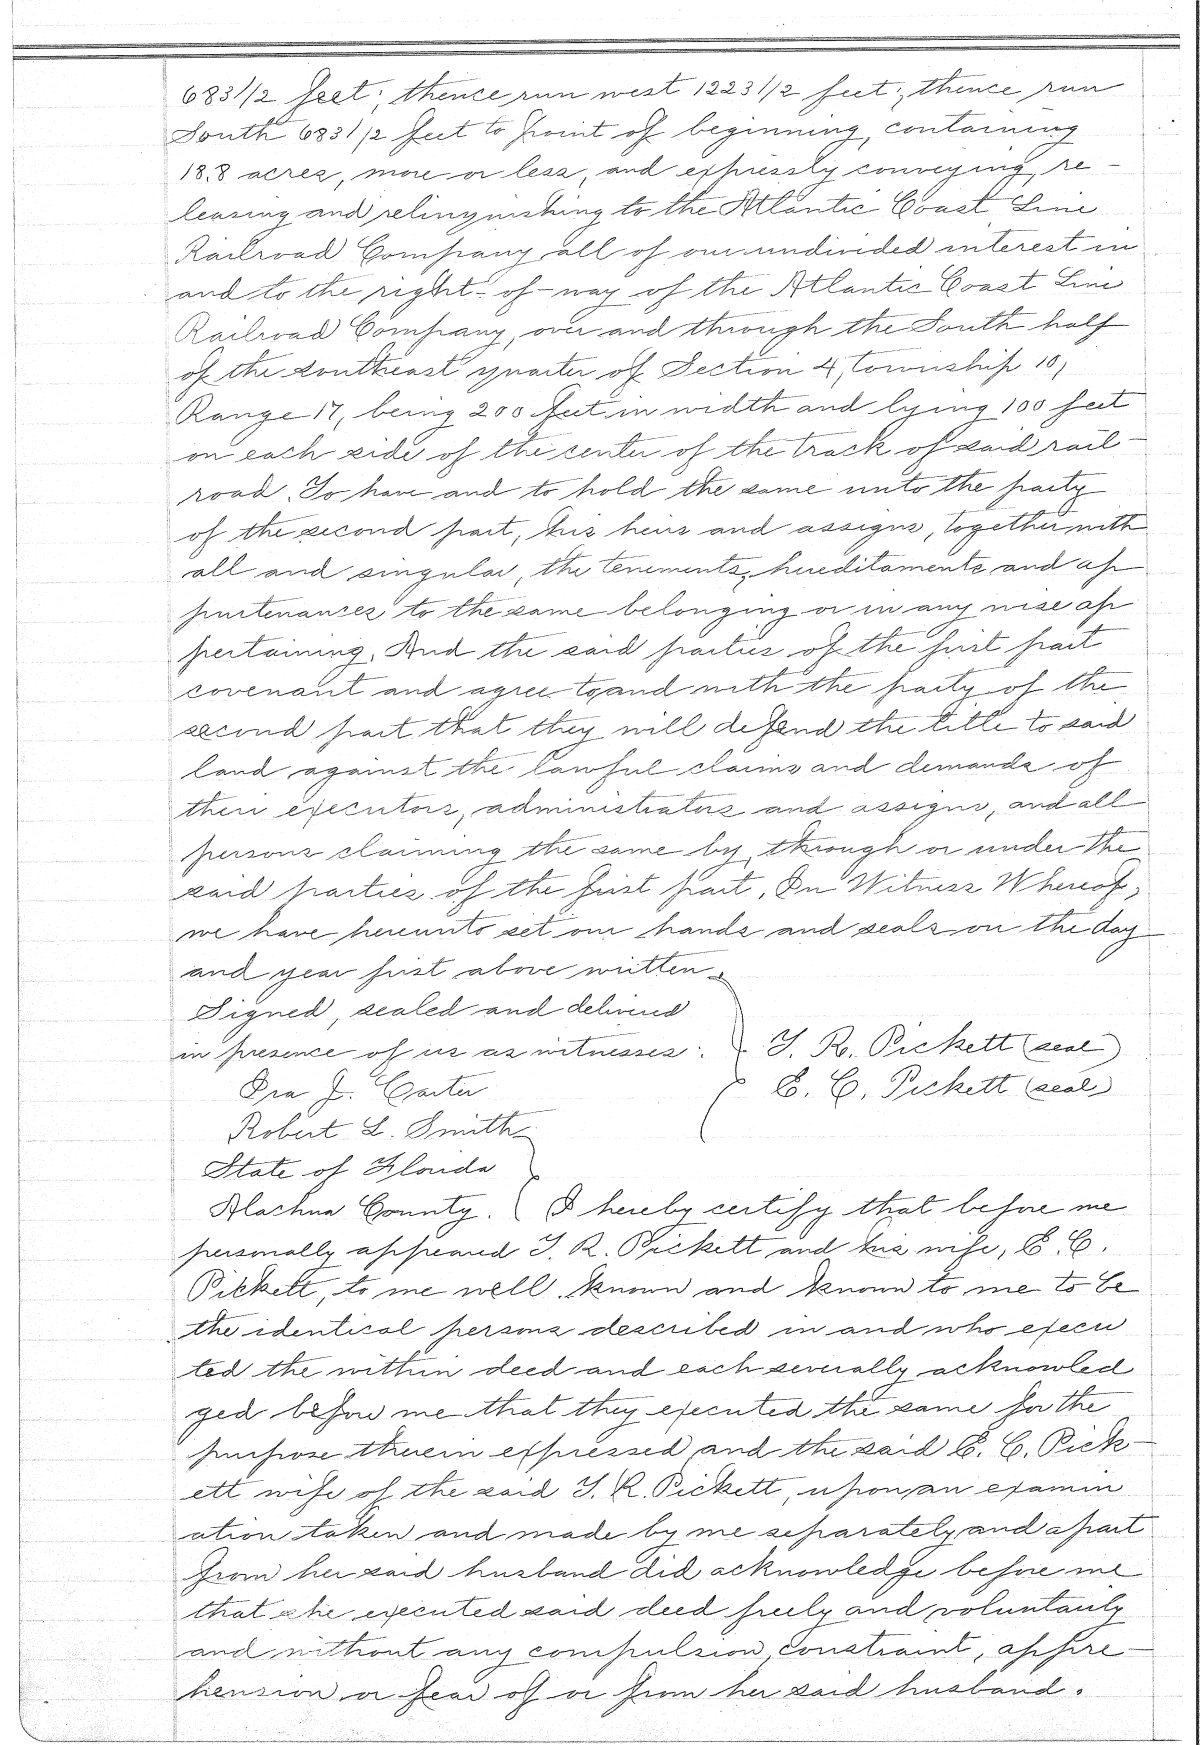 683 1/2 feet; thence run west 1223 1/2 feet; thence run
South 683 1/2 feet to point of beginning, containing
18.8 acres, more or less, and expressly conveying, re-
leasing and relinquishing to the Atlantic Coast Line
Railroad Company all of our undivided interest in
and to the right-of-way of the Atlantic Coast Line
Railroad Company, over and through the South half
of the southeast quarter of Section 4, township 10,
Range 17, being 200 feet in width and lying 100 feet
on each side of the center of the track of said rail-
road. To have and to hold the same unto the party
of the second part, his heirs and assigns, together with
all and singular, the tenements, hereditaments and ap
purtenances to the same belonging or in any wise ap
pertaining. And the said parties of the first part
covenant and agree to and with the party of the
second part that they will defend the title to said
land against the lawful claims and demands of
their executors, administrators and assigns, and all
persons claiming the same by, through or under the
said parties of the first part. In Witness Whereof,
we have hereunto set our hands and seals on the day
and year first above written.
Signed, sealed and delivered
in presence of us as witnesses: T. R. Pickett (seal)
Ira J. Carter E. C. Pickett (seal)
Robert L. Smith
State of Florida
Alachua County. I hereby certify that before me
personally appeared T. R. Pickett and his wife, E. C.
Pickett, to me well known and known to me to be
the identical persons described in and who execu
ted the within deed and each severally acknowled
ged before me that they executed the same for the
purpose therein expressed and the said E. C. Pick-
ett wife of the said T. R. Pickett, upon an examin
ation taken and made by me separately and apart
from her said husband did acknowledge before me
that she executed said deed freely and voluntarily
and without any compulsion, constraint, appre-
hension or fear of or from her said husband.